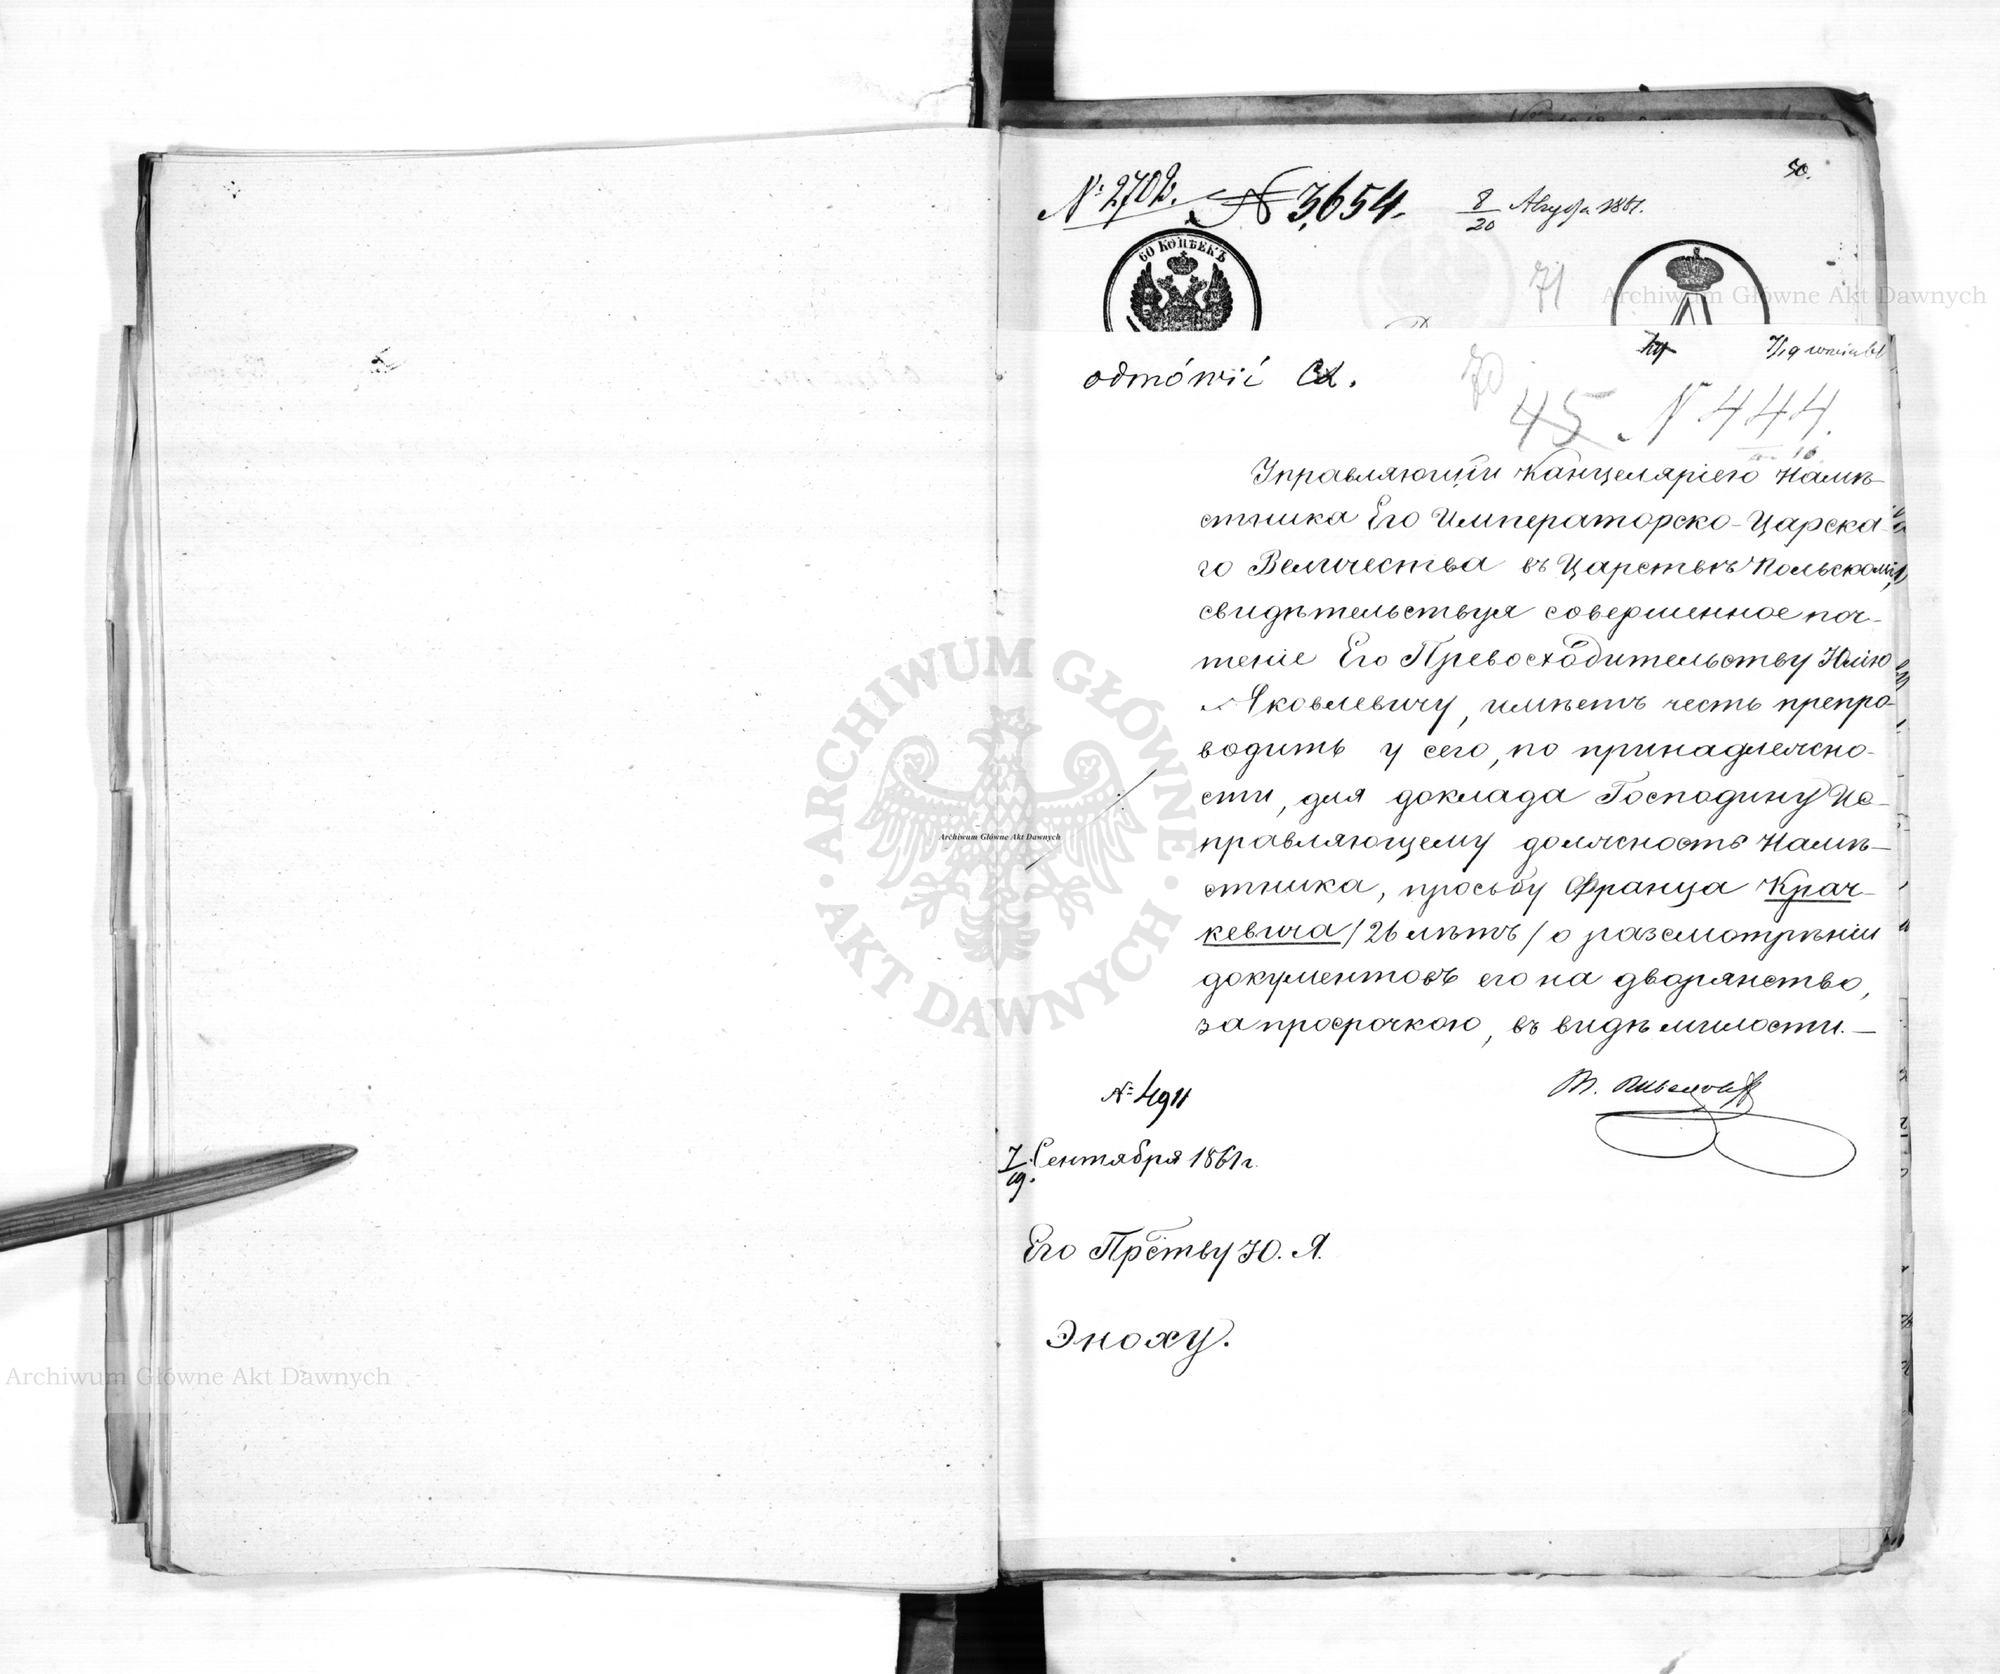 № 2702. № 3,654. 8/20 Августа 1861.
50.
60 КОПѢЕКЪ
71
7/19 września 61
odmówić
70
45 № 444.
Управляющій Канцеляріею Намѣ-
стника Его Императорско-Царска-
го Величества въ Царствѣ Польскомъ,
свидѣтельствуя совершенное поч-
теніе Его Превосходительству Юлію
Яковлевичу, имѣетъ честь препро-
водить у сего, по принадлежно-
сти, для доклада Господину Ис-
правляющему должность Намѣ-
стника, просьбу Франца Крач-
кевича /26 лѣтъ/ о разсмотрѣніи
документовъ его на дворянство,
за просрочкою, въ видѣ милости.—
№ 4911
7/19. Сентября 1861 г.
Его Прєтву Ю. Я.
Эноху.
Archiwum Główne Akt Dawnych
ARCHIWUM GŁÓWNE · AKT DAWNYCH ·
Archiwum Główne Akt Dawnych
Archiwum Główne Akt Dawnych